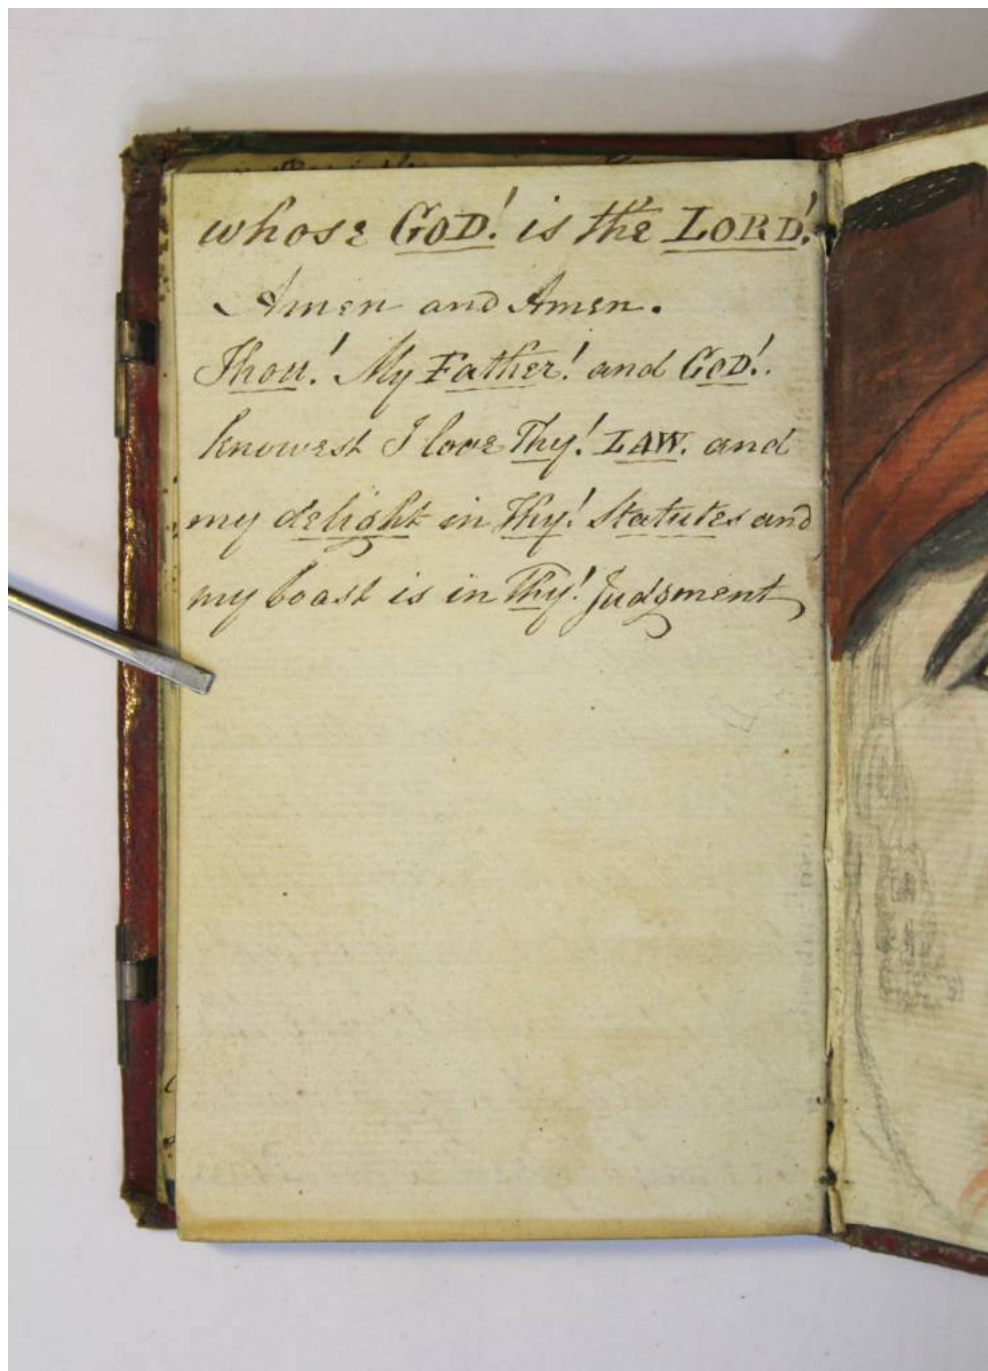 whose GOD! is the LORD!
Amen and Amen.
Thou! My Father! and GOD!.
knowest I love Thy! LAW. and
my delight in Thy! Statutes and
my boast is in Thy! Judgment